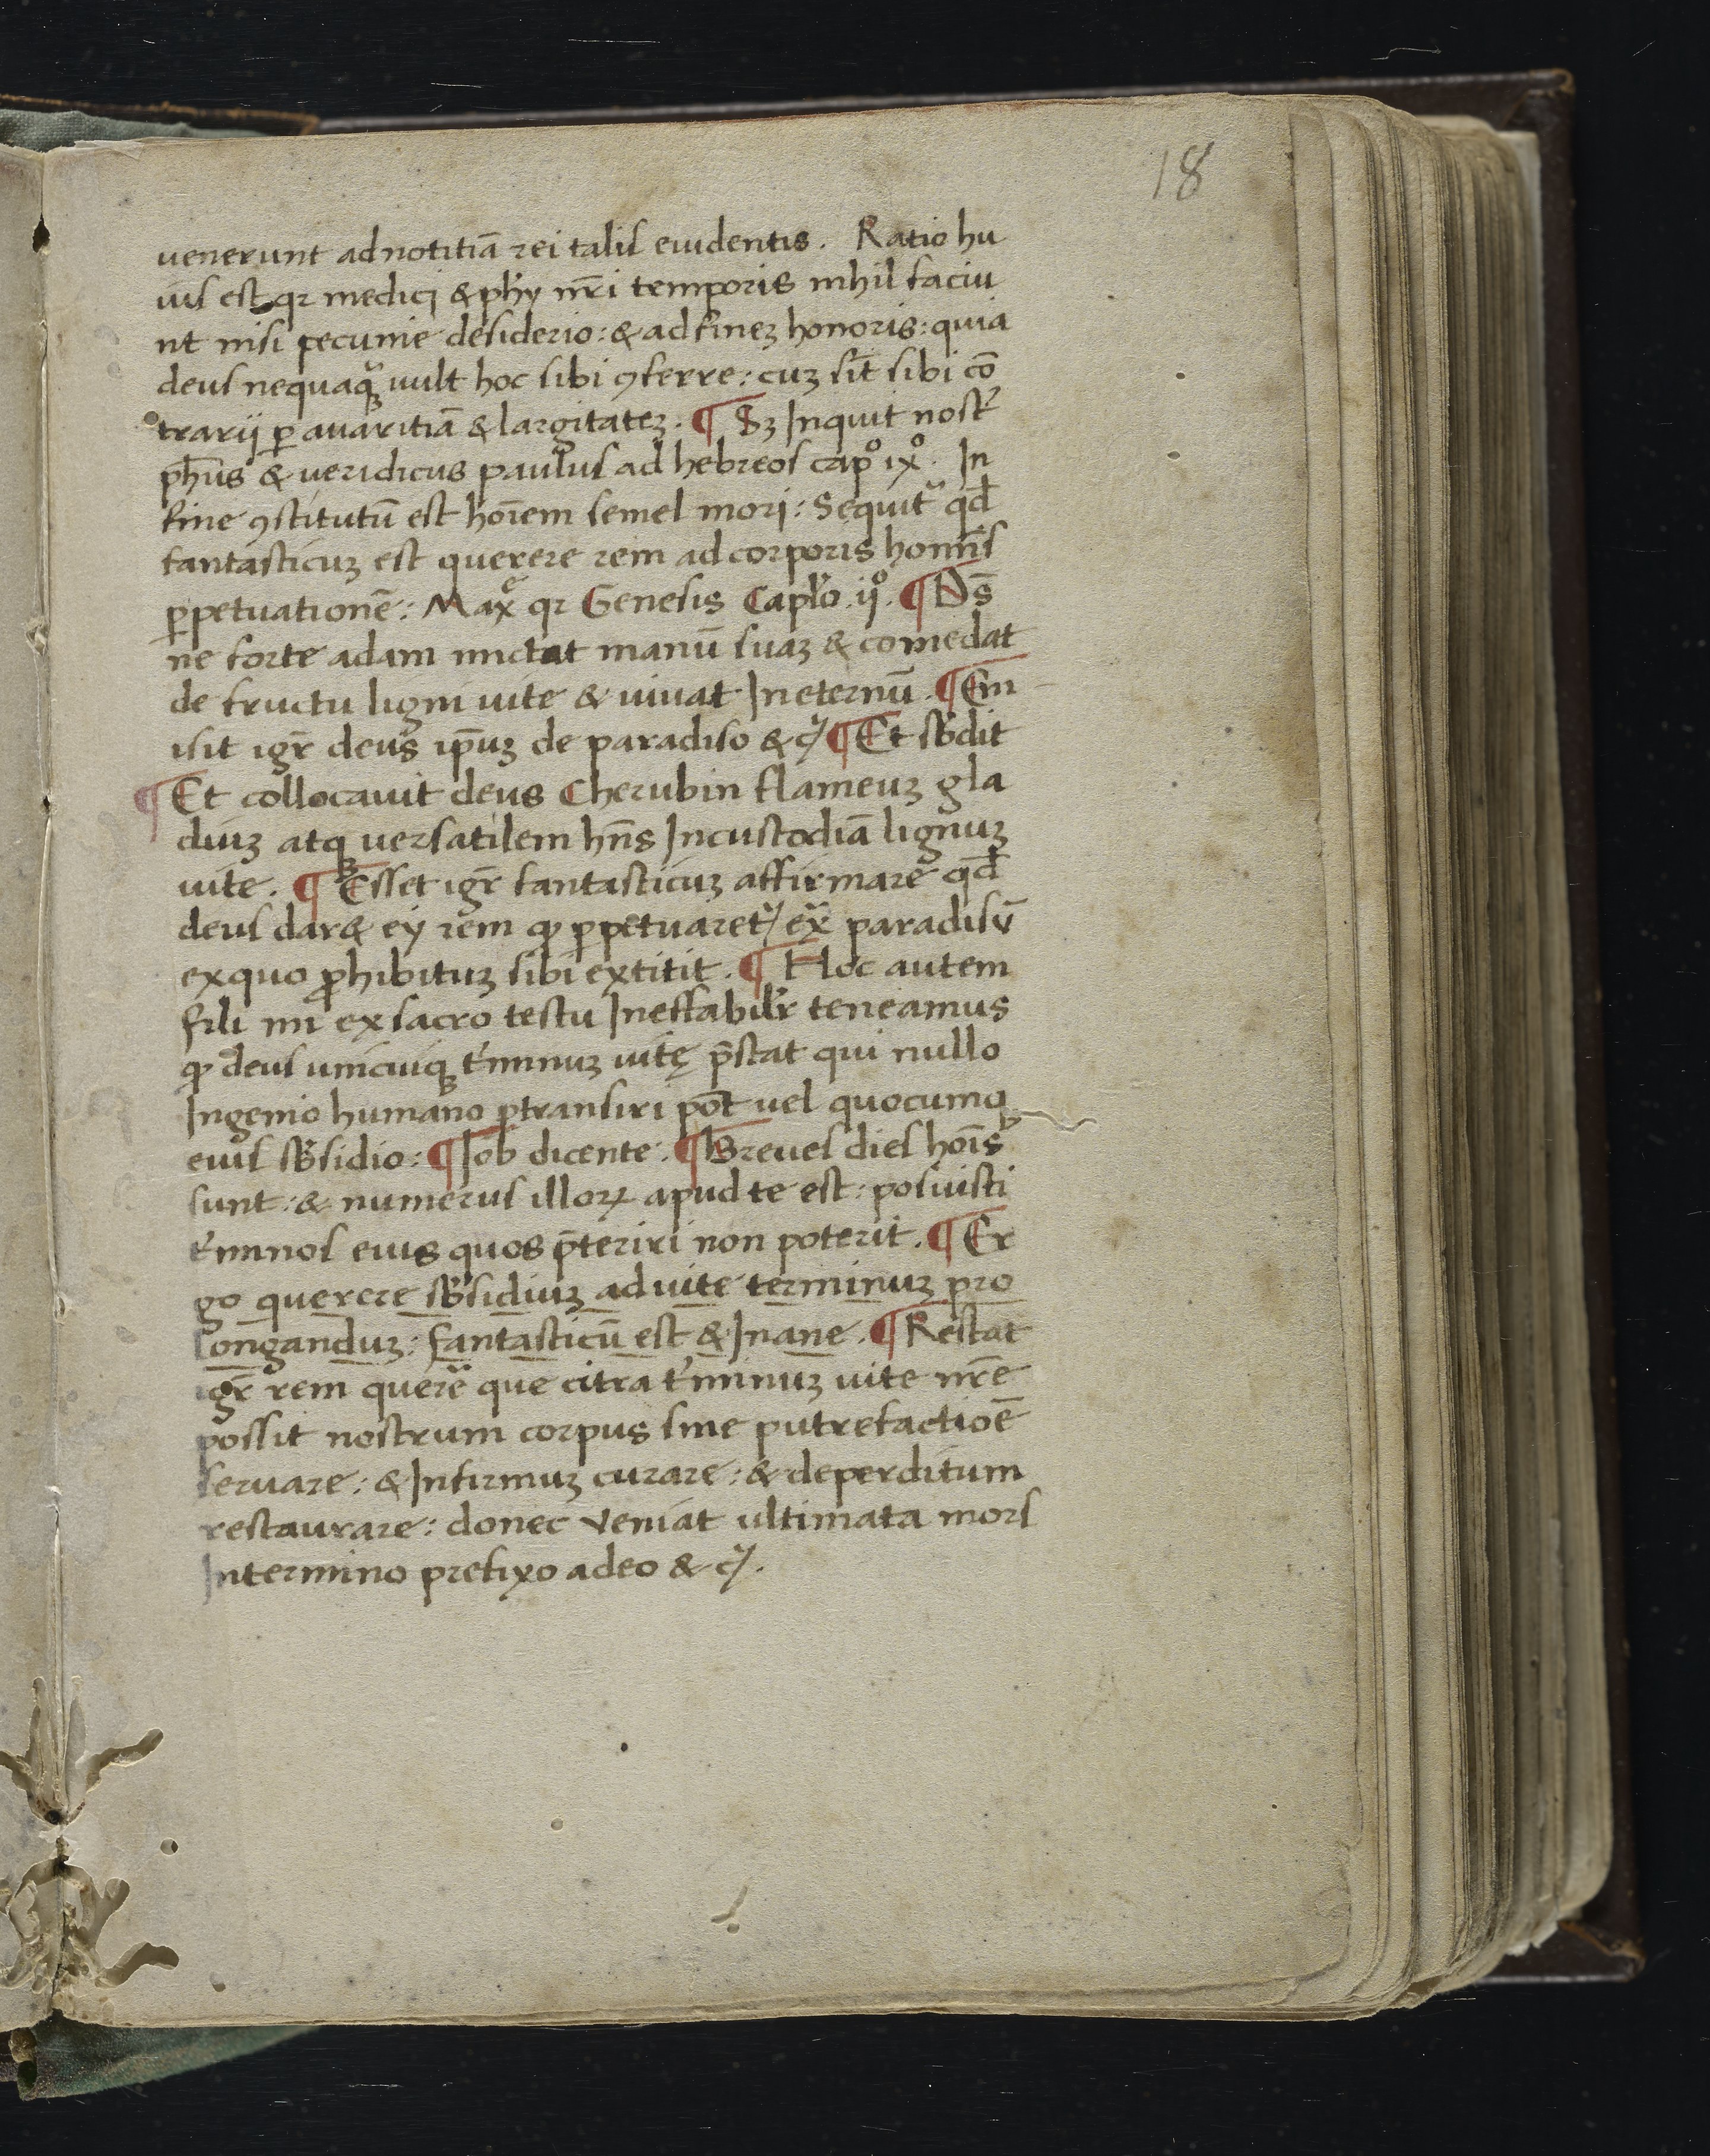 18
uenerunt ad notitiā rei talis euidentis. Ratio hu
ius est qr medici & phy nr̄i temporis nihil faciu
nt nisi pecunie desiderio: & ad finez honoris: quia
deus nequaqꝫ uult hoc sibi ꝯferre: cuz sīt sibi cō
trarij ꝑ auaritiā & largitatez. ¶ Sꝫ Inquit nostʳ
ph̄us & ueridicus paulus ad hebreos capº ixº. In
fine ꝯstitutū est hoīem semel mori: Sequitʳ qđ
fantasticuz est querere rem ad corporis homīs
ꝑpetuationē: Maxᵉ qr Genesis Capło .ijº. ¶ Ds̄
ne forte adam mictat manū suaz & comedat
de fructu ligni uite & uiuat In eternū. ¶ Em
isit igr̄ deus ip̄uz de paradiso & cꝭ ¶ Et sƀdit
¶ Et collocauit deus Cherubin flameuz gla
diuz atqꝫ uersatilem hn̄s In custodiā lignuz
uite. ¶ Esset igr̄ fantasticuz affirmare qđ
deus dar& ey rem ꝙ ꝑpetuaretʳ ex̄ paradisū
ex quo ꝓhibituz sibi extitit. ¶ Hoc autem
fili mi ex sacro testu Ineffabilr̄ teneamus
ꝙ deus unicuiqꝫ t'minuz uitę p̄stat qui nullo
Ingenio humano ꝑtransiri pōt uel quocumqꝫ
eius sƀsidio: ¶ Iob dicente. ¶ Breues dies hoīs
sunt: & numerus illoꝝ apud te est: posuisti
t'minos eius quos p̄teriri non poterit. ¶ Er
go querere sƀsidiuz ad uite terminuz pro
longanduz: fantasticū est & Inane. ¶ Restat
igr̄ rem quere que citra t'minuz uite nr̄e
possit nostrum corpus sine putrefactioē
seruare: & Infirmuz curare: & deperditum
restaurare: donec veniat ultimata mors
In termino prefixo a deo & cꝭ.